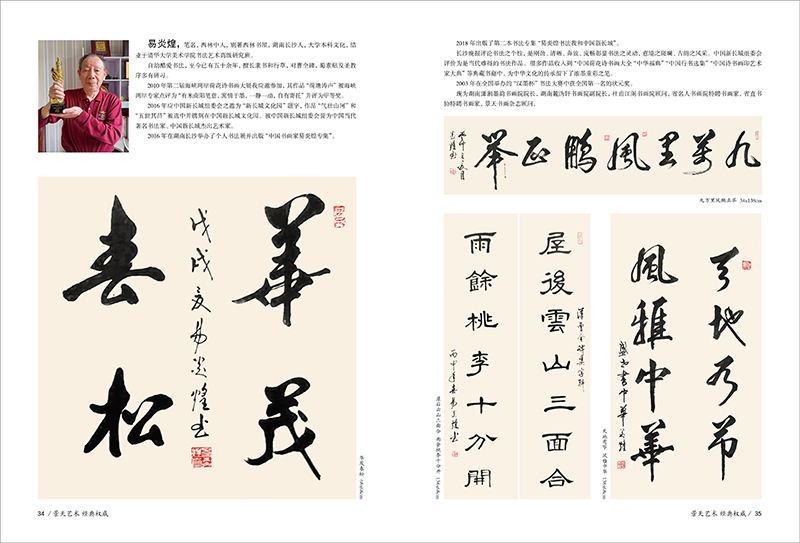 易炎煌，笔名，西林中人，别署西林书屋，湖南长沙人，大学本科文化，结
业于清华大学美术学院书法艺术高级研究班。
自幼酷爱书法，至今已有五十余年，擅长隶书和行草，对曹全碑、蜀素帖及圣教
序多有研习。
2010年第二届海峡两岸荷花诗书画大展我应邀参加，其作品“荷塘涛声”被海峡
两岸专家点评为“有米南阳笔意，寓情于墨，一静一动，自有荷花”并评为甲等奖。
2016年应中国新长城组委会之邀为“新长城文化园”题字，作品“气壮山河”和
“五世其昌”被选中并镌刻在中国新长城文化园。被中国新长城组委会誉为中国当代
著名书法家、中国新长城杰出艺术家。
2016年在湖南长沙举办了个人书法展并出版“中国书画家易炎煌专集”。
華茂
春松
戊戌夏易炎煌书
华茂春松
34 / 景天艺术 经典权威
2018年出版了第二本书法专集“易炎煌书法我和中国新长城”。
长沙晚报评论书法之个性，是刚劲、清晰、奔放、流畅彰显书法之灵动，意境之斑斓、古韵之风采。中国新长城组委会
评价为是当代难得的书法作品。很多作品收入到“中国荷花诗书画大全”“中华福典”“中国行书选集”“中国诗书画印艺术
家大典”等典藏书籍中，为中华文化的传承留下了浓墨重彩之笔。
2003年在全国举办的“汉墨杯”书法大赛中获全国第一名的状元奖。
九萬里風鵬正舉
九万里风鹏正举 34x139cm
屋後雲山三面合
雨餘桃李十分開
天地乃節
風雅中華
景天艺术 经典权威 / 35